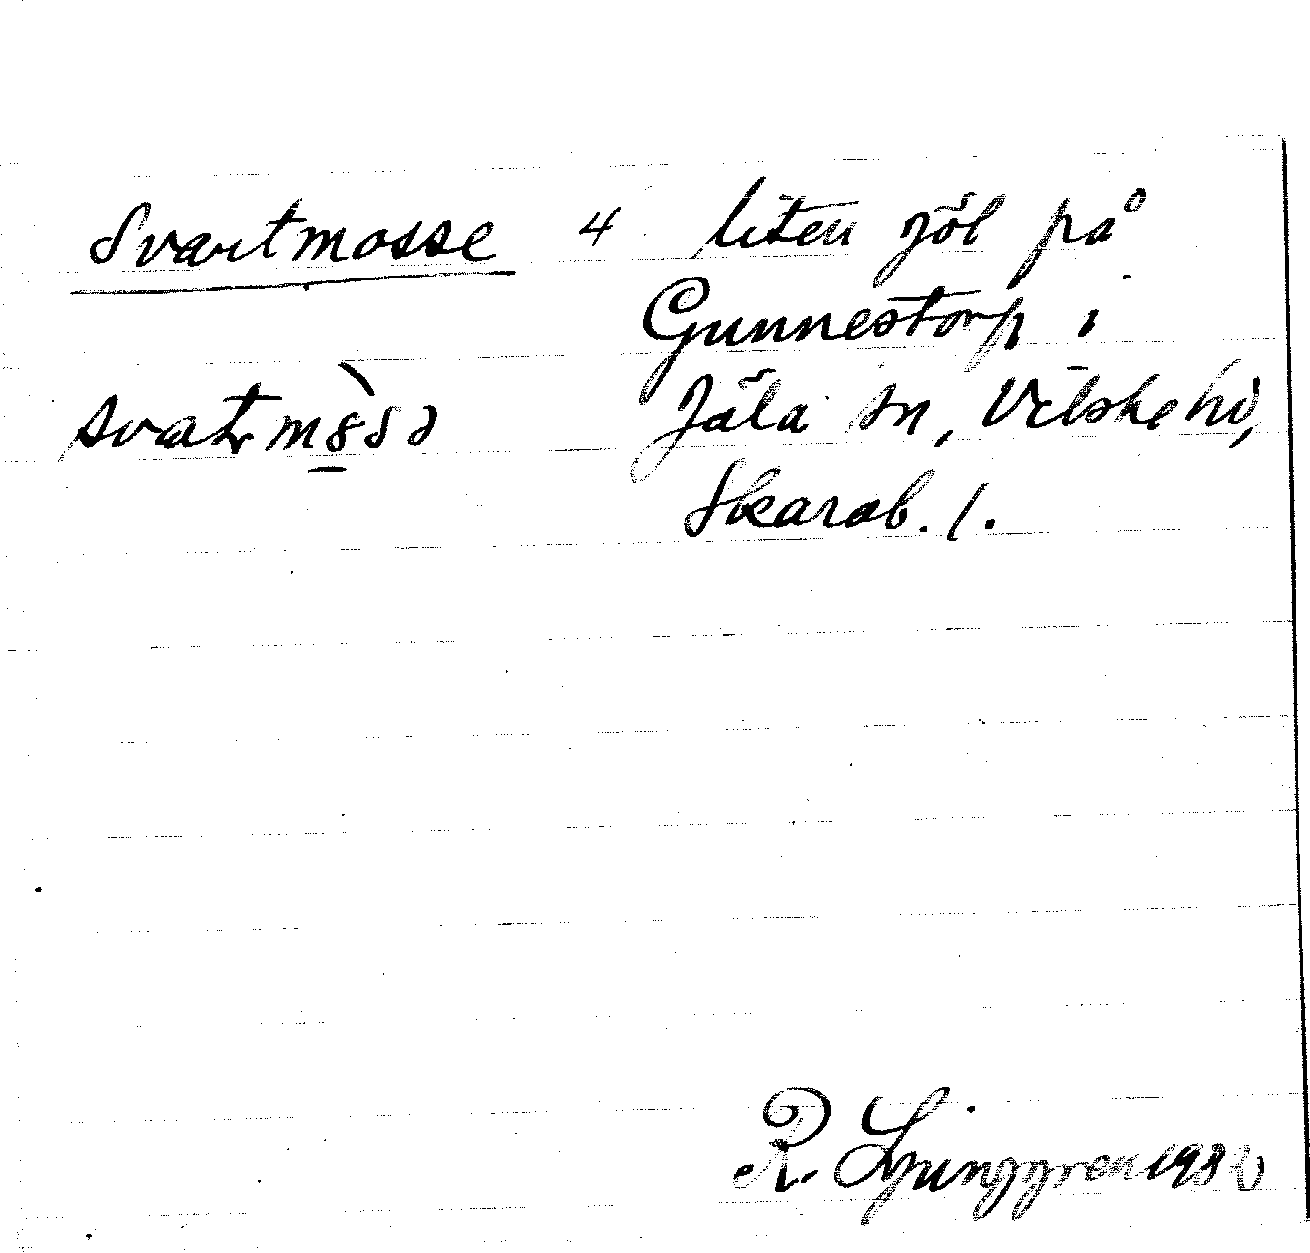 Svartmosse 4 liten göl på
Gunnestorp i
svatmosə Jäla sn, Vilske hd,
Skarab. l.
R. Ljunggren